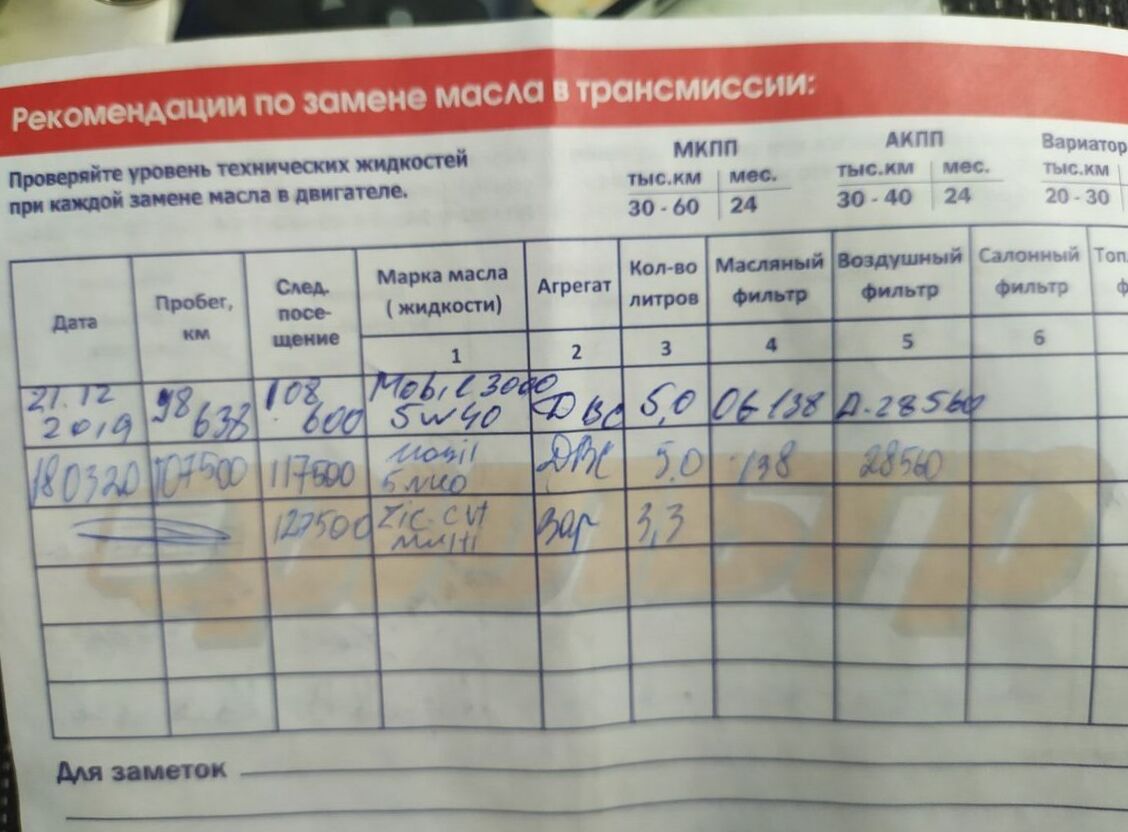 Рекомендации по замене масла в трансмиссии:
Проверяйте уровень технических жидкостей
при каждой замене масла в двигателе.
МКПП
тыс.км мес.
30 - 60 24
АКПП
тыс.км мес.
30 - 40 24
Вариатор
тыс.км
20 - 30
Дата
Пробег,
км
След.
посе-
щение
Марка масла
( жидкости)
Агрегат
Кол-во
литров
Масляный
фильтр
Воздушный
фильтр
Салонный
фильтр
1 2 3 4 5 6
21.12 2019 98 638 108 600 Mobil 3000 5w40 ДВС 5,0 ОБ 138 А.28560
180320 107500 117500 Mobil ДВС 5.0 138 28560
127500 Zic CVT Multi Вар 3,3
Для заметок